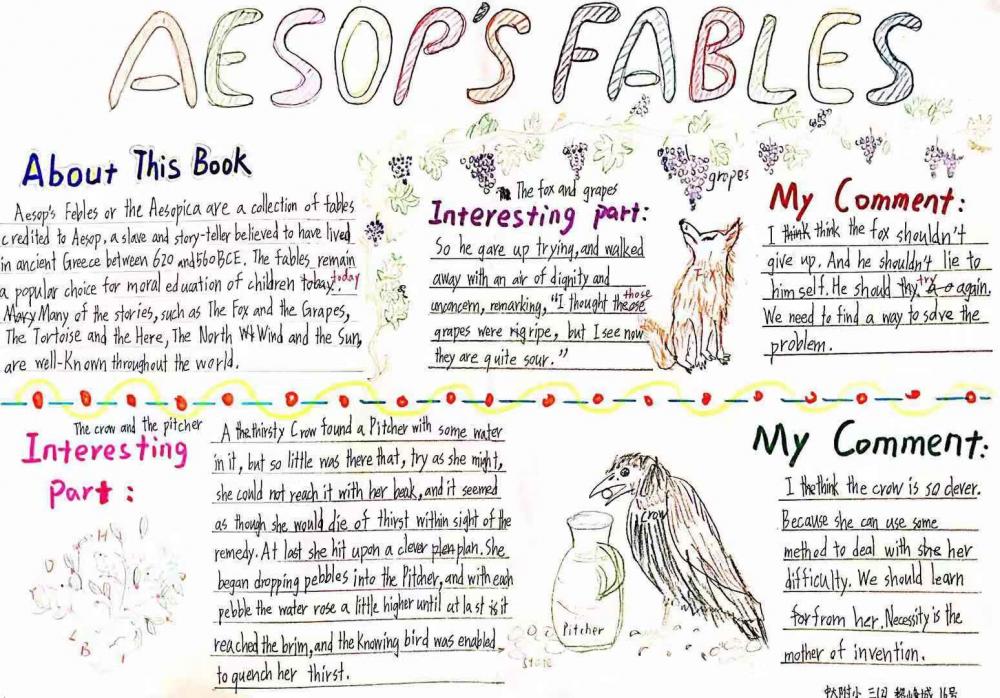 AESOP'S FABLES
About This Book
Aesop's Febles or the Aesopica are a collection of fables
credited to Aesop, a slave and story-teller believed to have lived
in ancient Greece between 620 and 560 BCE. The fables remain
a popular choice for moral education of children tobay. today
Many of the stories, such as The Fox and the Grapes,
The Tortoise and the Here, The North Wind and the Sun,
are well-Known throughout the world.
The fox and grapes
Interesting part:
So he gave up trying, and walked
away with an air of dignity and
unconcern, remarking, "I thought those
grapes were ripe, but I see now
they are quite sour."
grapes
Fox
My Comment:
I think think the fox shouldn't
give up. And he shouldn't lie to
himself. He should try again.
We need to find a way to solve the
problem.
The crow and the pitcher
Interesting
part:
A thirsty Crow found a Pitcher with some water
in it, but so little was there that, try as she might,
she could not reach it with her beak, and it seemed
as though she would die of thirst within sight of the
remedy. At last she hit upon a clever plan. She
began dropping pebbles into the Pitcher, and with each
pebble the water rose a little higher until at last it
reached the brim, and the knowing bird was enabled
to quench her thirst.
crow
Pitcher
My Comment:
I think the crow is so clever.
Because she can use some
method to deal with her
difficulty. We should learn
from her. Necessity is the
mother of invention.
附小 三 16号